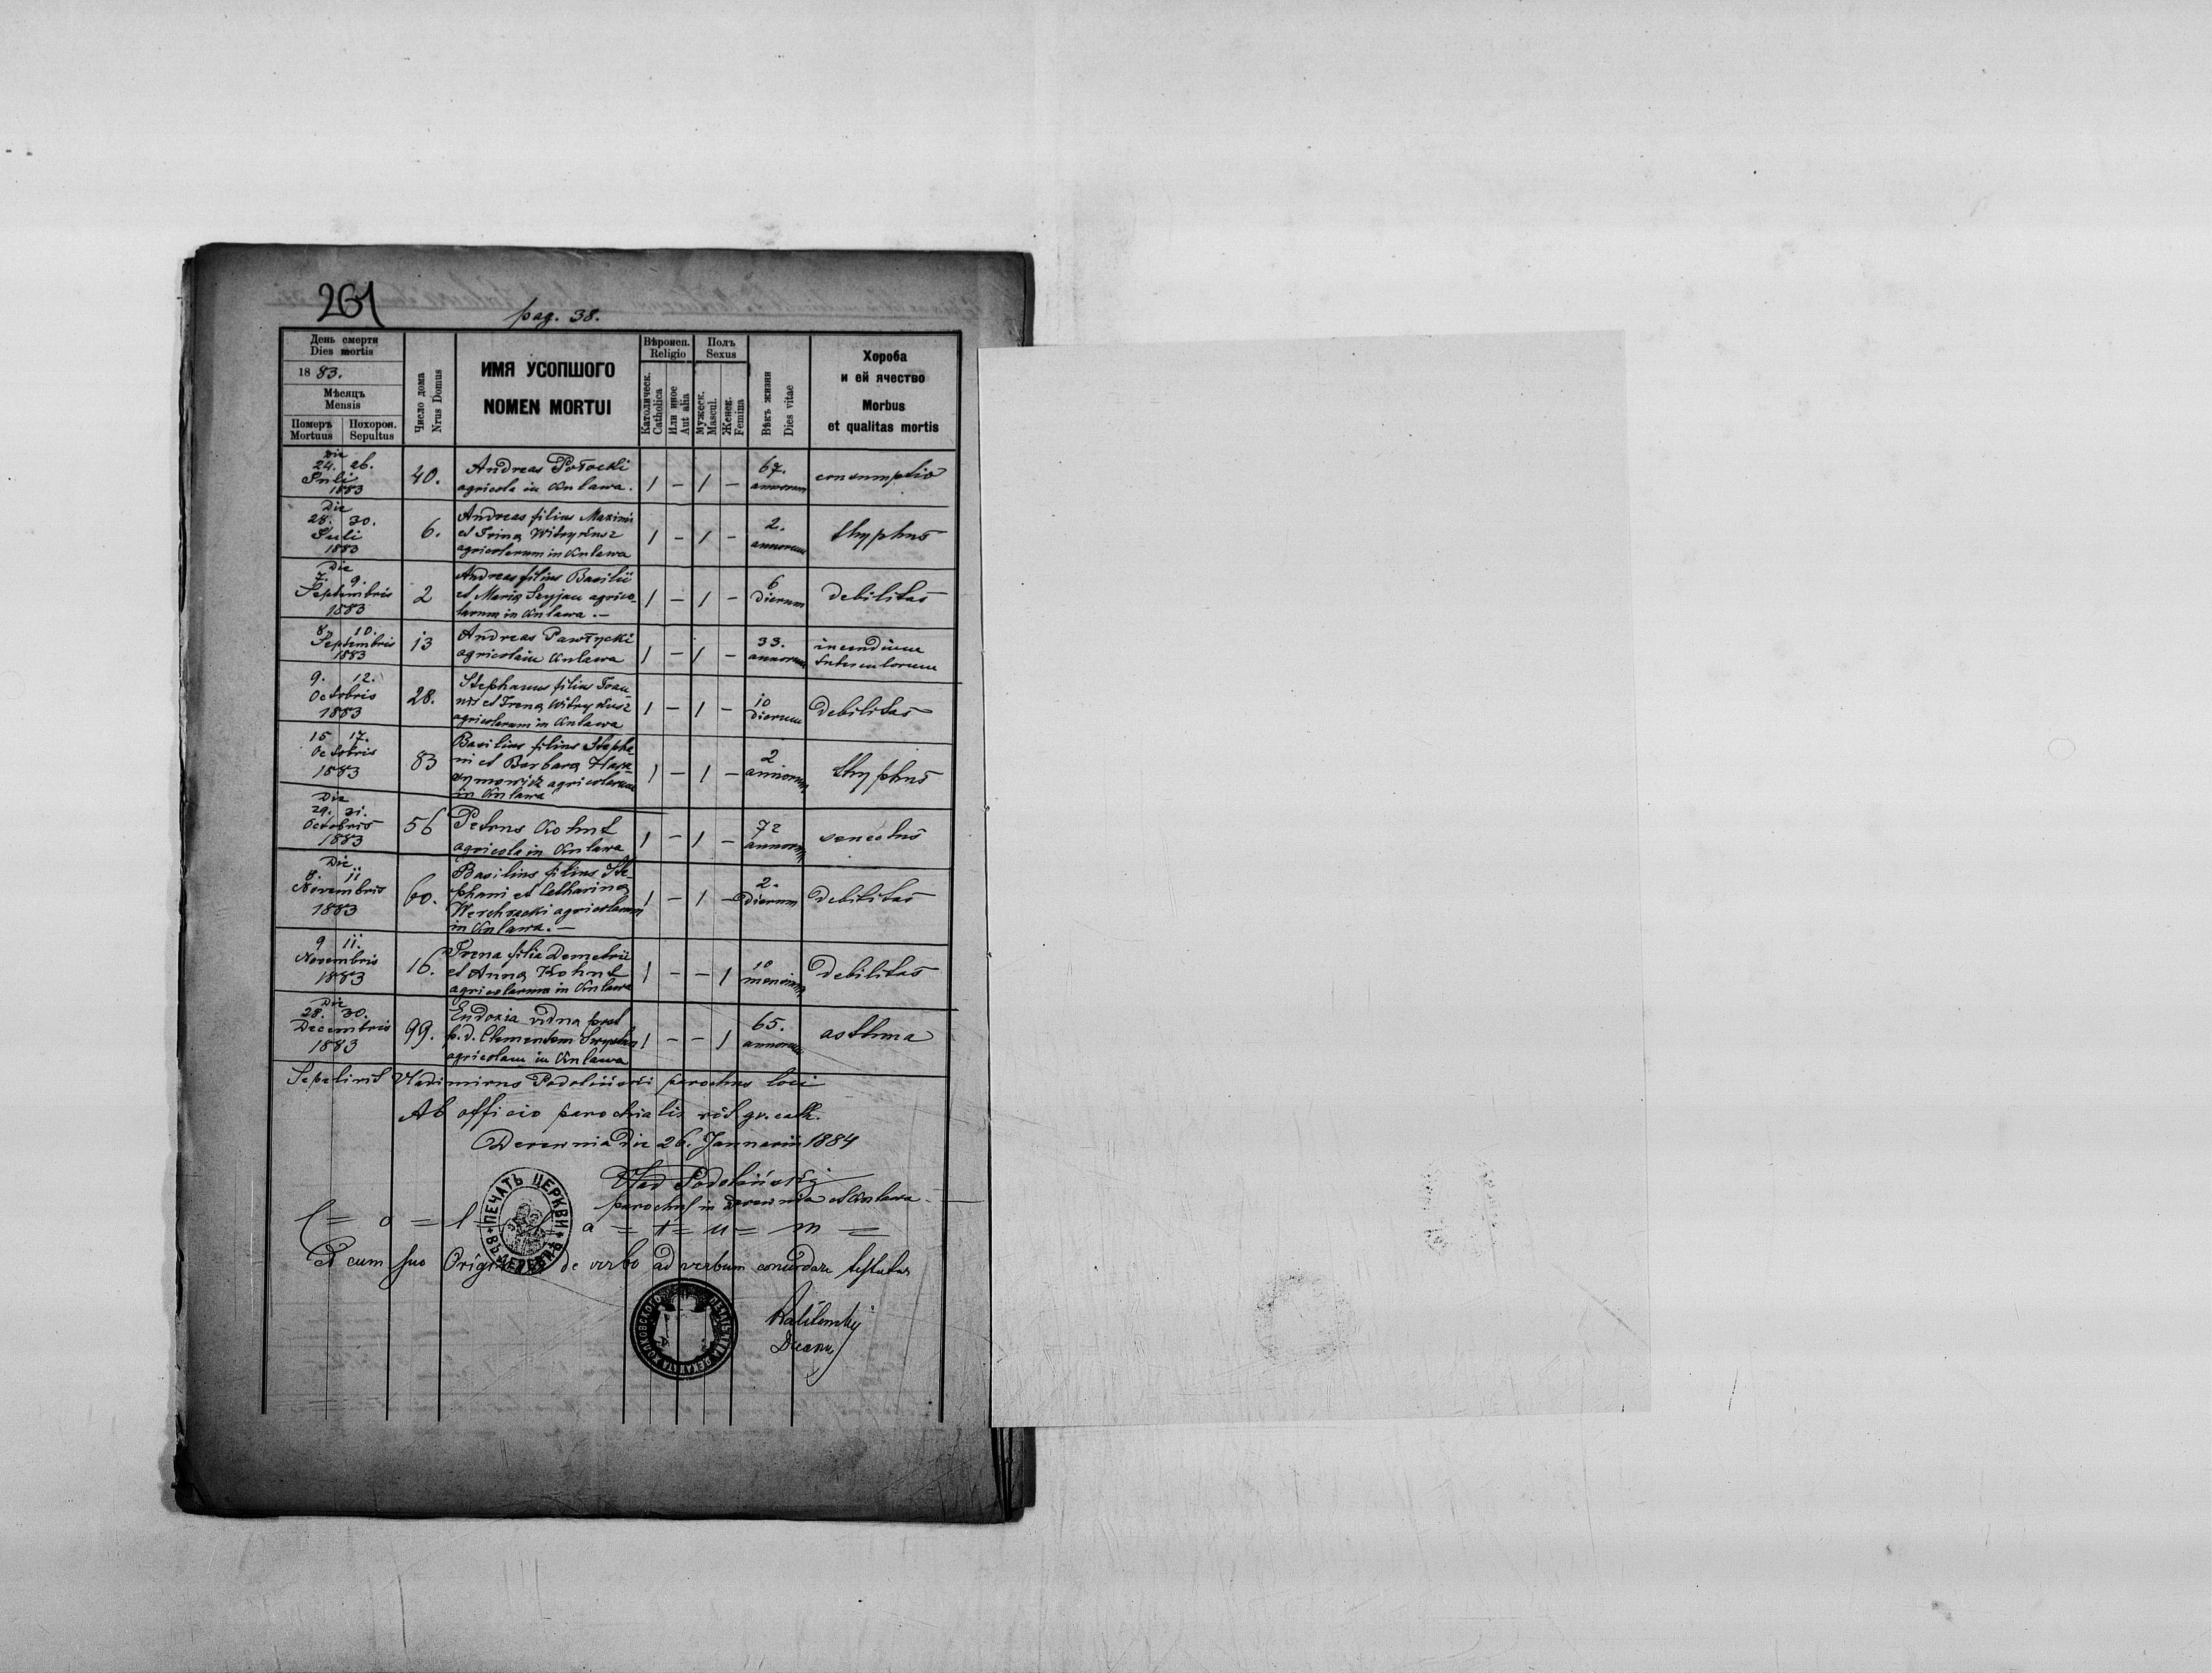 261
pag. 38.
День смерти
Dies mortis
18 83.
Мѣсяць
Mensis
Померъ Похорон.
Mortuus Sepultus
Число дома
Nrus Domus
ИМЯ УСОПШОГО
NOMEN MORTUI
Вѣроисп.
Religio
Католическ.
Catholica
Или иное
Aut alia
Полъ
Sexus
Мужеск.
Mascul.
Женск.
Femina
Вѣкъ жизни
Dies vitae
Хороба
и ей ячество
Morbus
et qualitas mortis
Die
24. 26.
Juli
1883
40.
Andreas Potocki
agricola in Kulawa.
1 – 1 –
67.
annorum
consumptio
Die
28. 30.
Juli
1883
6.
Andreas filius Maximi
et Irina
agricolarum in Kulawa
1 – 1 –
2.
annorum
thyphus
Die
7. 9.
Septembris
1883
2
Andreas filius Basilii
et Maria agrico-
larum in Kulawa. —
1 – 1 –
6
dierum
debilitas
8. 10.
Septembris
1883
13
Andreas Pawłycki
agricola in Kulawa
1 – 1 –
33.
annorum
incendium
9. 12.
Octobris
1883
28.
Stephanus filius Joan-
nis et Irena
agricolarum in Kulawa
1 – 1 –
10
dierum
debilitas
15 17.
Octobris
1883
83
Basilius filius Stepha-
ni et Barbara
agricolarum
in Kulawa
1 – 1 –
2
annorum
thyphus
Die
29. 31.
Octobris
1883
56
Petrus Kohut
agricola in Kulawa
1 – 1 –
72
annorum
senectus
Die
8. 11
Novembris
1883
60.
Basilius filius Ste-
phani et Catharina
Werchracki agricolarum
in Kulawa. —
1 – 1 –
2.
dierum
debilitas
9 11.
Novembris
1883
16.
Irena filia Demetrii
et Anna Kohut
agricolarum in Kulawa
1 – – 1
10
mensium
debilitas
Die
28. 30.
Decembris
1883
99.
Eudoxia vidua post
p. d. Clementem
agricolam in Kulawa
1 – – 1
65.
annorum
asthma
Sepelivit Vladimirus Podoliński parochus loci
Ab officio parochialis rit gr. cath.
Derewnia die 26. Januarii 1884
Vlad Podoliński
parochus in Derewnia et Kulawa
ПЕЧАТЬ ЦЕРКВИ ВЪ ДЕРЕВНИ
C = o = l = l = a = t = u = m =
Et cum suo Origi de verbo ad verbum concordare testatur
ДЕКАНАТА ЖОЛКОВСКОГО
Decanus